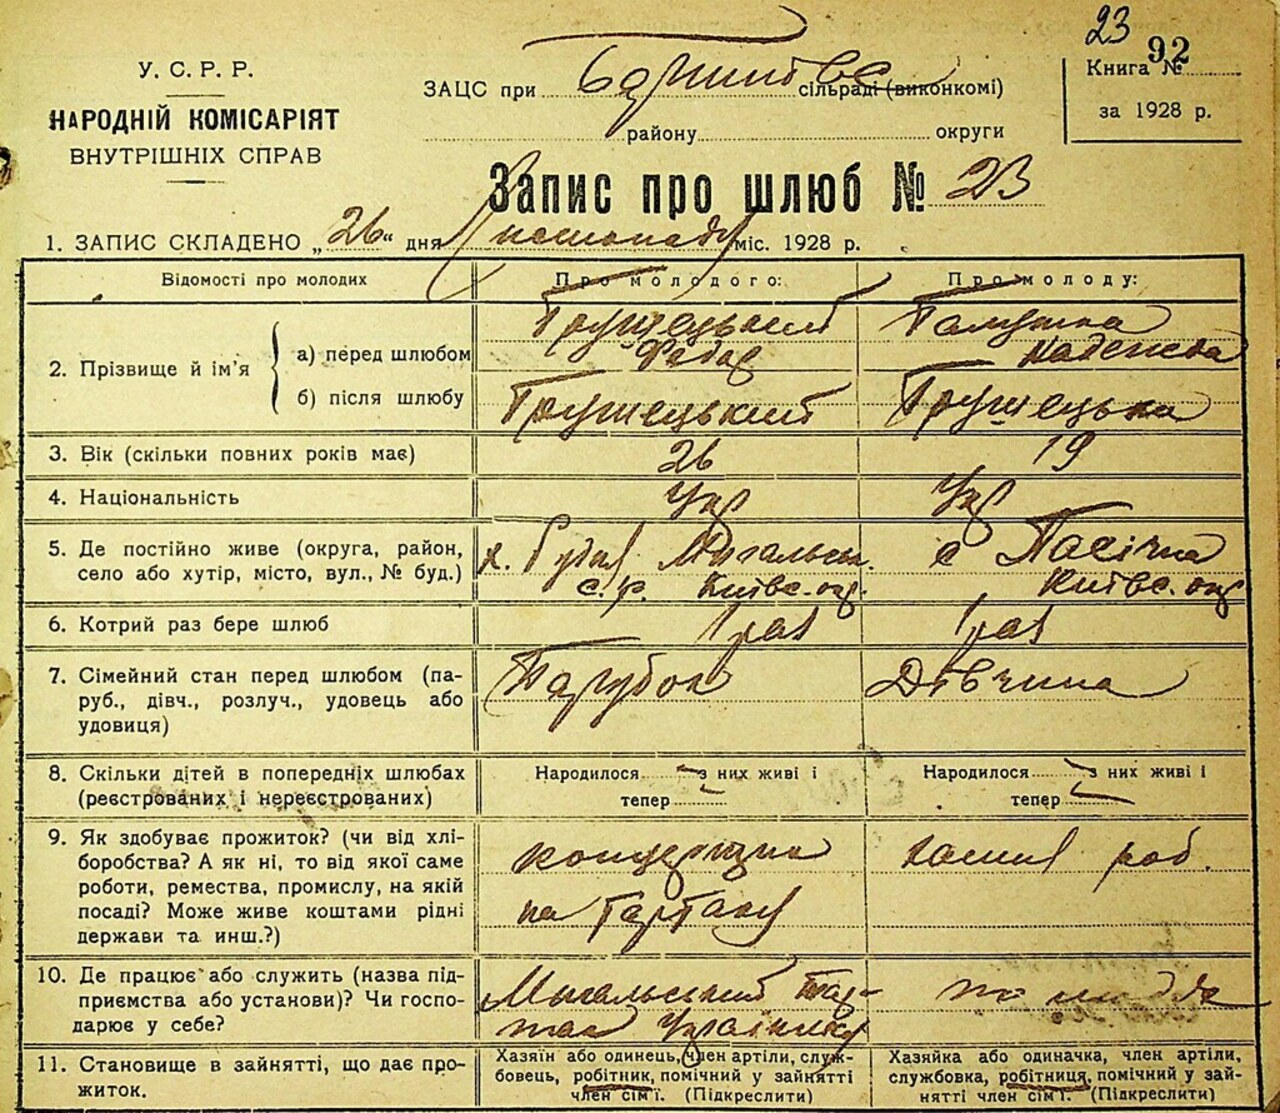 23
92
У. С. Р. Р.
НАРОДНІЙ КОМІСАРІЯТ
ВНУТРІШНІХ СПРАВ
ЗАЦС при сільраді (виконкомі)
району округи
Книга №
за 1928 р.
Запис про шлюб № 23
1. ЗАПИС СКЛАДЕНО „26“ дня листопаду міс. 1928 р.
Відомості про молодих
Про молодого:
Про молоду:
2. Прізвище й ім'я
а) перед шлюбом
Грушецький
Федір
Галушка
Надежда
б) після шлюбу
Грушецький
Грушецька
3. Вік (скільки повних років має)
26
19
4. Національність
Укр
Укр
5. Де постійно живе (округа, район, село або хутір, місто, вул., № буд.)
х. Буда
с. р. Київс. окр.
с Пасічна
Київс. окр
6. Котрий раз бере шлюб
1 раз
1 раз
7. Сімейний стан перед шлюбом (паруб., дівч., розлуч., удовець або удовиця)
Парубок
Дівчина
8. Скільки дітей в попередніх шлюбах (реєстрованих і нереєстрованих)
Народилося з них живі і
тепер
Народилося з них живі і
тепер
9. Як здобуває прожиток? (чи від хліборобства? А як ні, то від якої саме роботи, ремества, промислу, на якій посаді? Може живе коштами рідні держави та инш.?)
на
роб.
10. Де працює або служить (назва підприємства або установи)? Чи господарює у себе?
11. Становище в зайнятті, що дає прожиток.
Хазяїн або одинець, член артіли, службовець, робітник, помічний у зайнятті член сім'ї. (Підкреслити)
Хазяйка або одиначка, член артіли, службовка, робітниця, помічний у зайнятті член сім'ї. (Підкреслити)